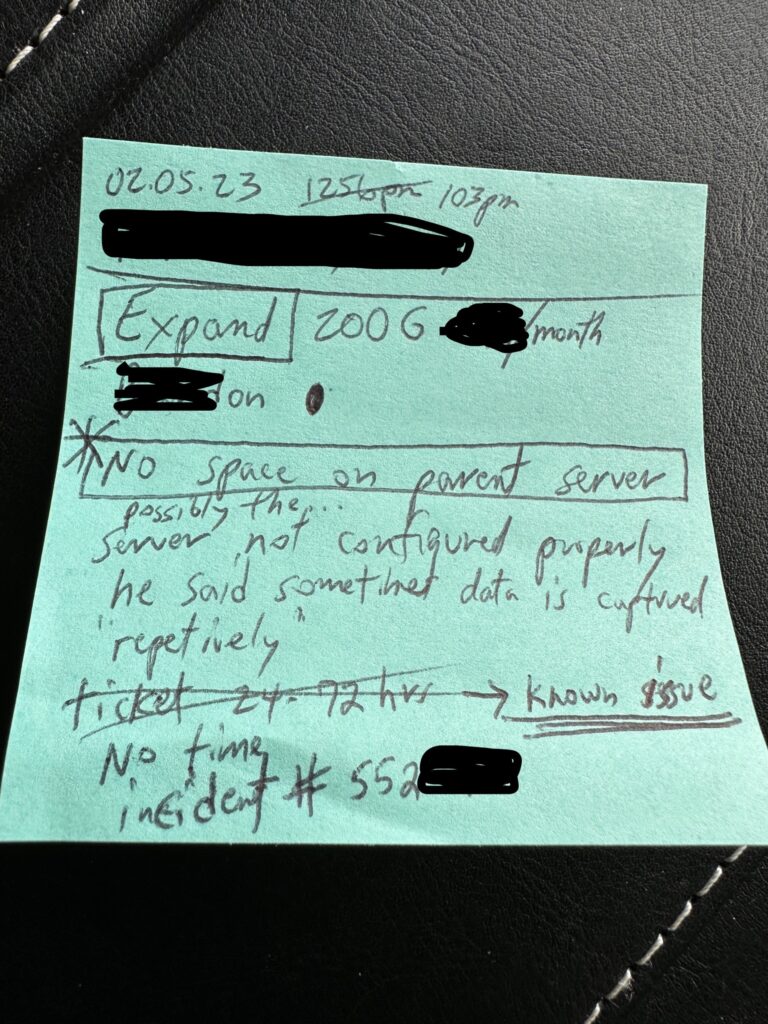 02.05.23 1256pm 103pm
Expand 200G /month
on
* No space on parent server
possibly the...
server not configured properly
he said sometimes data is captured
"repetively"
ticket 24-72 hrs → known issue
No time
incident # 552